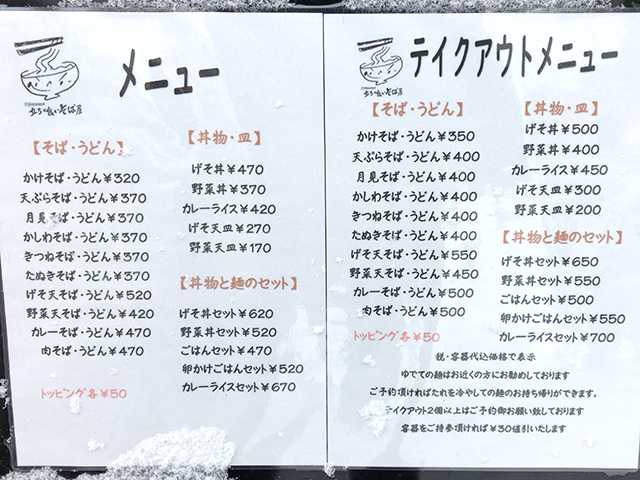 メニュー
立ち喰いそば屋
【そば・うどん】
かけそば・うどん¥320
天ぷらそば・うどん¥370
月見そば・うどん¥370
かしわそば・うどん¥370
きつねそば・うどん¥370
たぬきそば・うどん¥370
げそ天そば・うどん¥520
野菜天そば・うどん¥420
カレーそば・うどん¥470
肉そば・うどん¥470
トッピング各¥50
【丼物・皿】
げそ丼¥470
野菜丼¥370
カレーライス¥420
げそ天皿¥270
野菜天皿¥170
【丼物と麺のセット】
げそ丼セット¥620
野菜丼セット¥520
ごはんセット¥470
卵かけごはんセット¥520
カレーライスセット¥670
テイクアウトメニュー
立ち喰いそば屋
【そば・うどん】
かけそば・うどん¥350
天ぷらそば・うどん¥400
月見そば・うどん¥400
かしわそば・うどん¥400
きつねそば・うどん¥400
たぬきそば・うどん¥400
げそ天そば・うどん¥550
野菜天そば・うどん¥450
カレーそば・うどん¥500
肉そば・うどん¥500
トッピング各¥50
【丼物・皿】
げそ丼¥500
野菜丼¥400
カレーライス¥450
げそ天皿¥300
野菜天皿¥200
【丼物と麺のセット】
げそ丼セット¥650
野菜丼セット¥550
ごはんセット¥500
卵かけごはんセット¥550
カレーライスセット¥700
税・容器代込価格で表示
ゆでての麺はお近くの方にお勧めしております
ご予約頂ければたれを冷やしての麺のお持ち帰りができます。
テイクアウト2個以上はご予約御お願い致しております
容器をご持参頂ければ¥30値引いたします